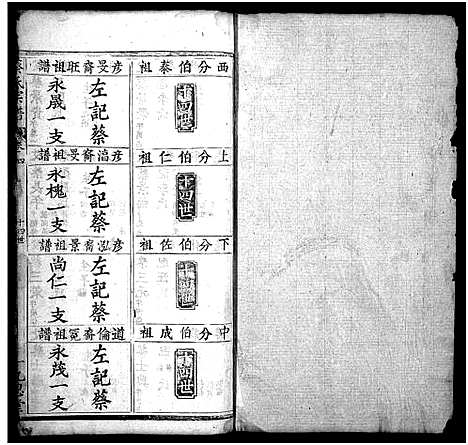 西分伯泰祖
十四世
彦旻斎旺祖譜
左記蔡
永晟一支
上分伯仁祖
十四世
彦滈斎旻祖譜
左記蔡
永槐一支
下分伯佐祖
十四世
彦泓斎景祖譜
左記蔡
尚仁一支
中分伯成祖
十四世
道倫斎冕祖譜
左記蔡
永茂一支
十四世